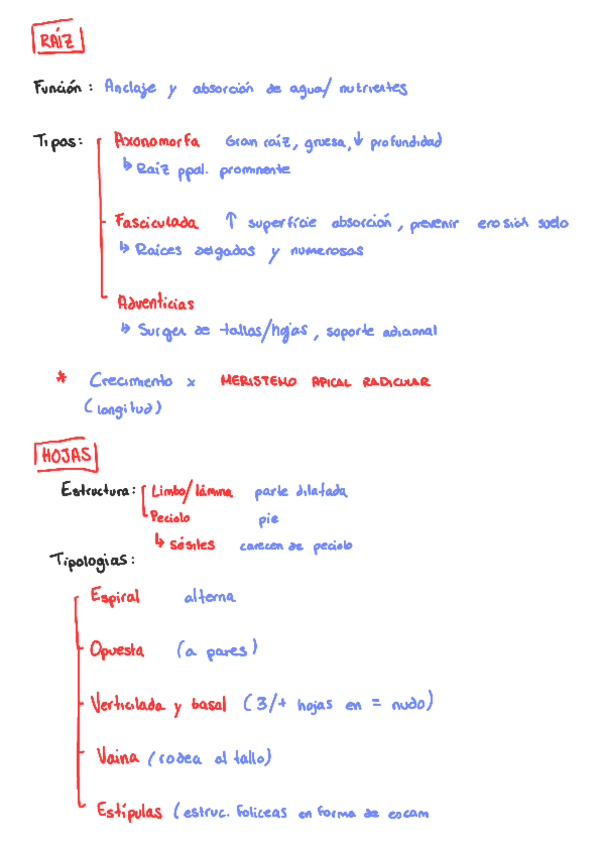 RAÍZ
Función: Anclaje y absorción de agua/ nutrientes
Tipos: Axonomorfa Gran raíz, gruesa, ↓ profundidad
↳ Raíz ppal. prominente
Fasciculada ↑ superfície absorción, prevenir erosión suelo
↳ Raíces delgadas y numerosas
Adventicias
↳ Surgen de tallos/hojas, soporte adicional
* Crecimiento x MERISTEMO APICAL RADICULAR
(longitud)
HOJAS
Estructura: Limbo/lámina parte dilatada
Peciolo pie
↳ Sésiles carecen de peciolo
Tipologias:
Espiral alterna
Opuesta (a pares)
Verticilada y basal (3/+ hojas en = nudo)
Vaina (rodea al tallo)
Estípulas (estruc. foliceas en forma de escam